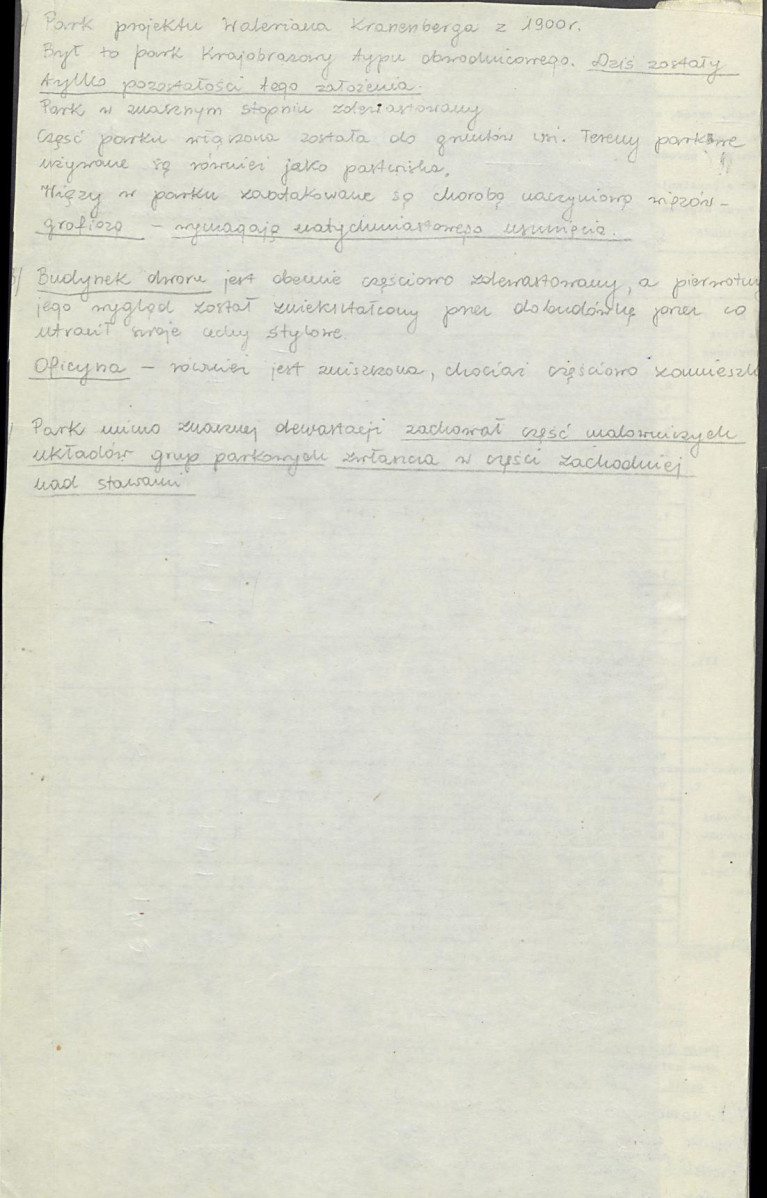 Park projektu Waleriana Kranenberga z 1900r.
Był to park Krajobrazowy typu obwodnicowego. Dziś zostały
tylko pozostałości tego założenia.
Park w znacznym stopniu zdewastowany
Część parku włączona została do gruntów wsi. Tereny parkowe
używane są również jako pastwiska. !!
Wiązy w parku zaatakowane są chorobą naczyniową wiązów -
grafiozą - wymagają natychmiastowego usunięcia.
Budynek dworu jest obecnie częściowo zdewastowany, a pierwotny
jego wygląd został zniekształcony przez dobudówkę przez co
utracił swoje cechy stylowe.
Oficyna - również jest zniszczona, chociaż częściowo zamieszk
Park mimo znacznej dewastacji zachował część malowniczych
układów grup parkowych zwłaszcza w części zachodniej
nad stawami